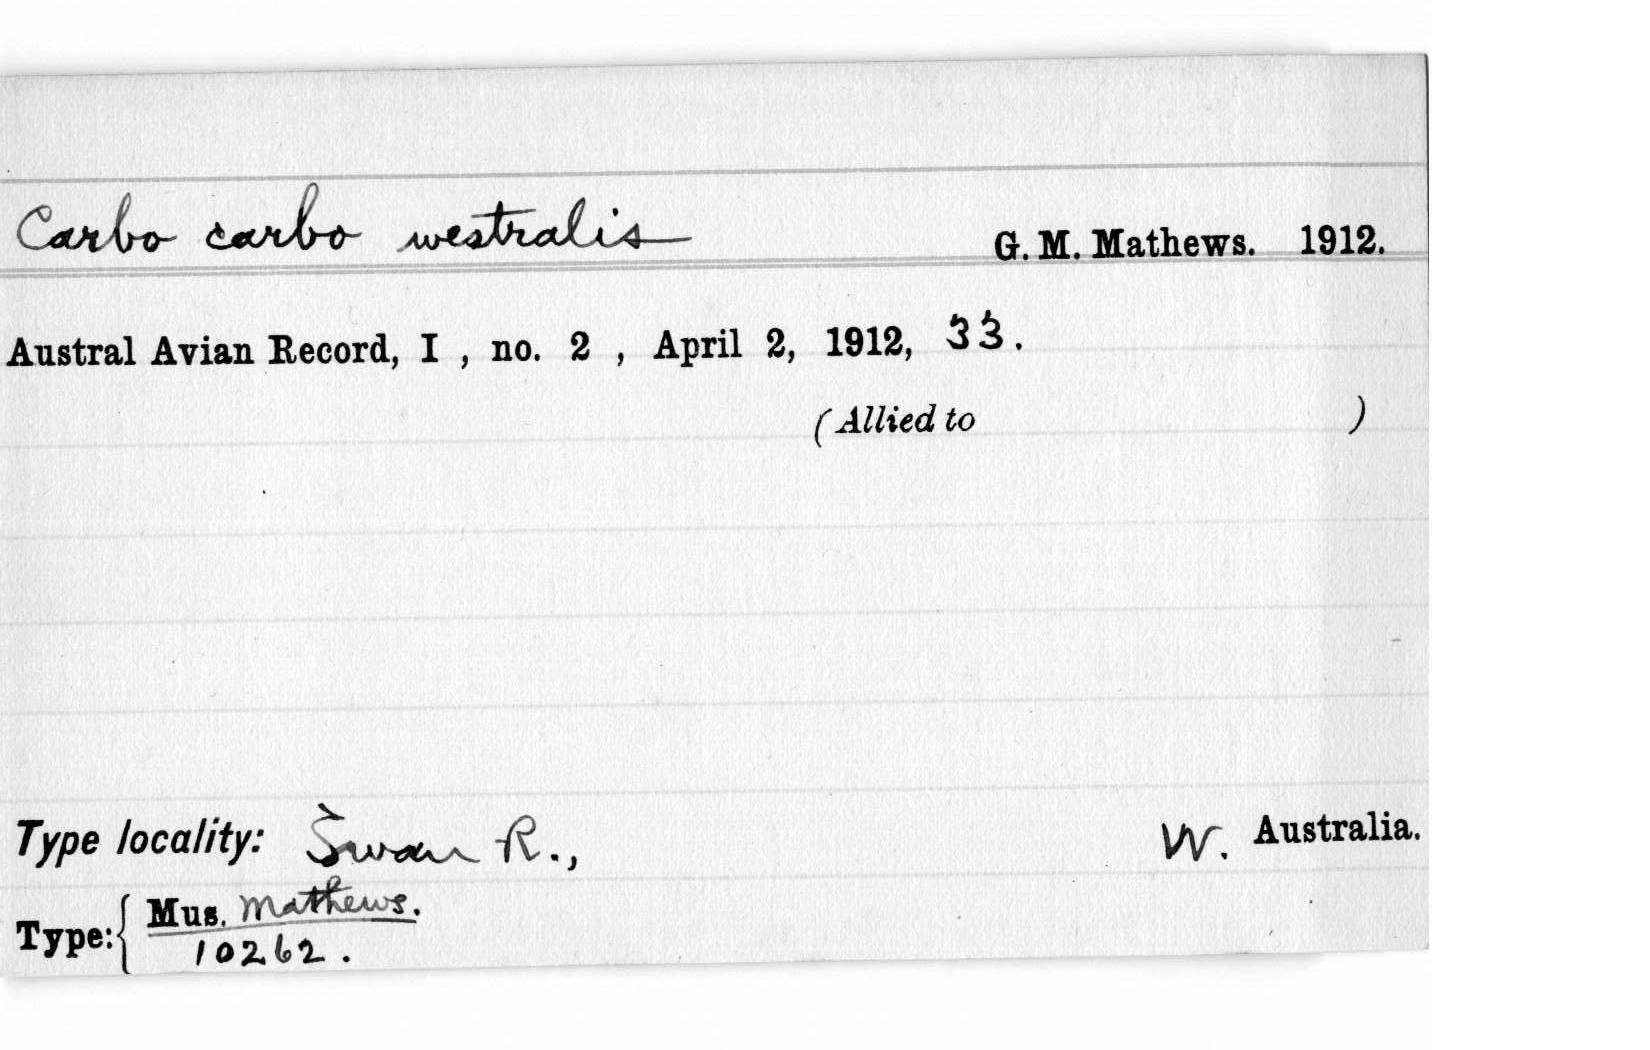 Carbo carbo westralis G. M. Mathews. 1912.
Austral Avian Record, I , no. 2 , April 2, 1912, 33.
(Allied to )
Type locality: Swan R., W. Australia.
Type: { Mus. Mathews.
10262.